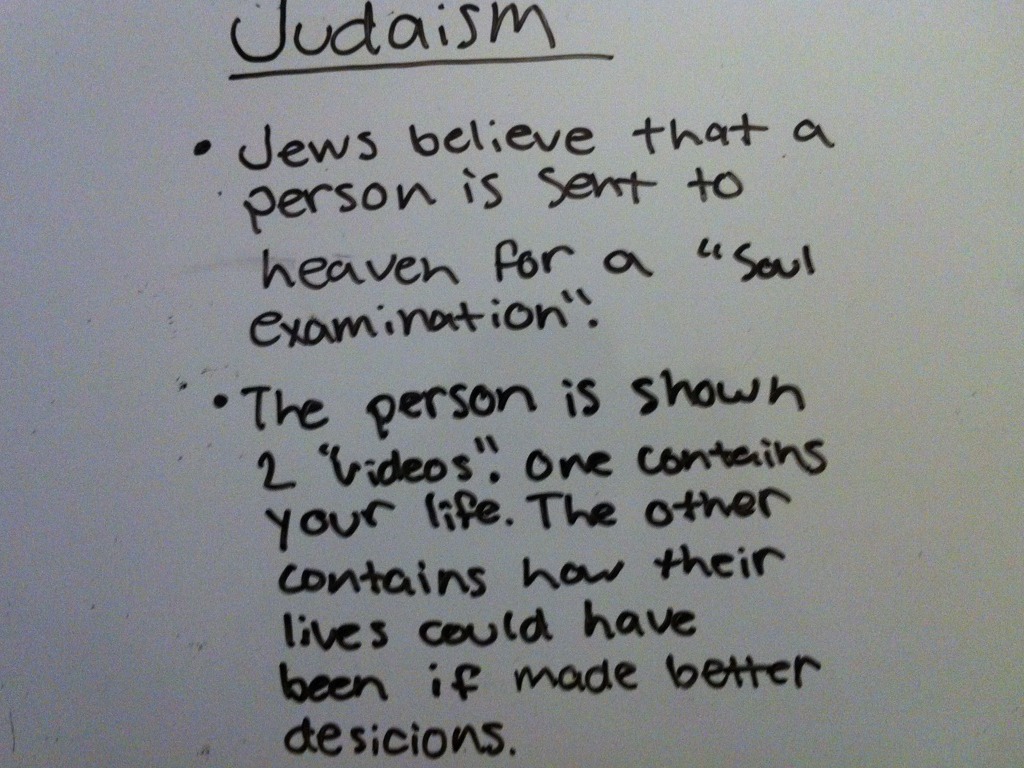 Judaism
• Jews believe that a
person is sent to
heaven for a "Soul
examination".
• The person is shown
2 "Videos". One contains
your life. The other
contains how their
lives could have
been if made better
desicions.